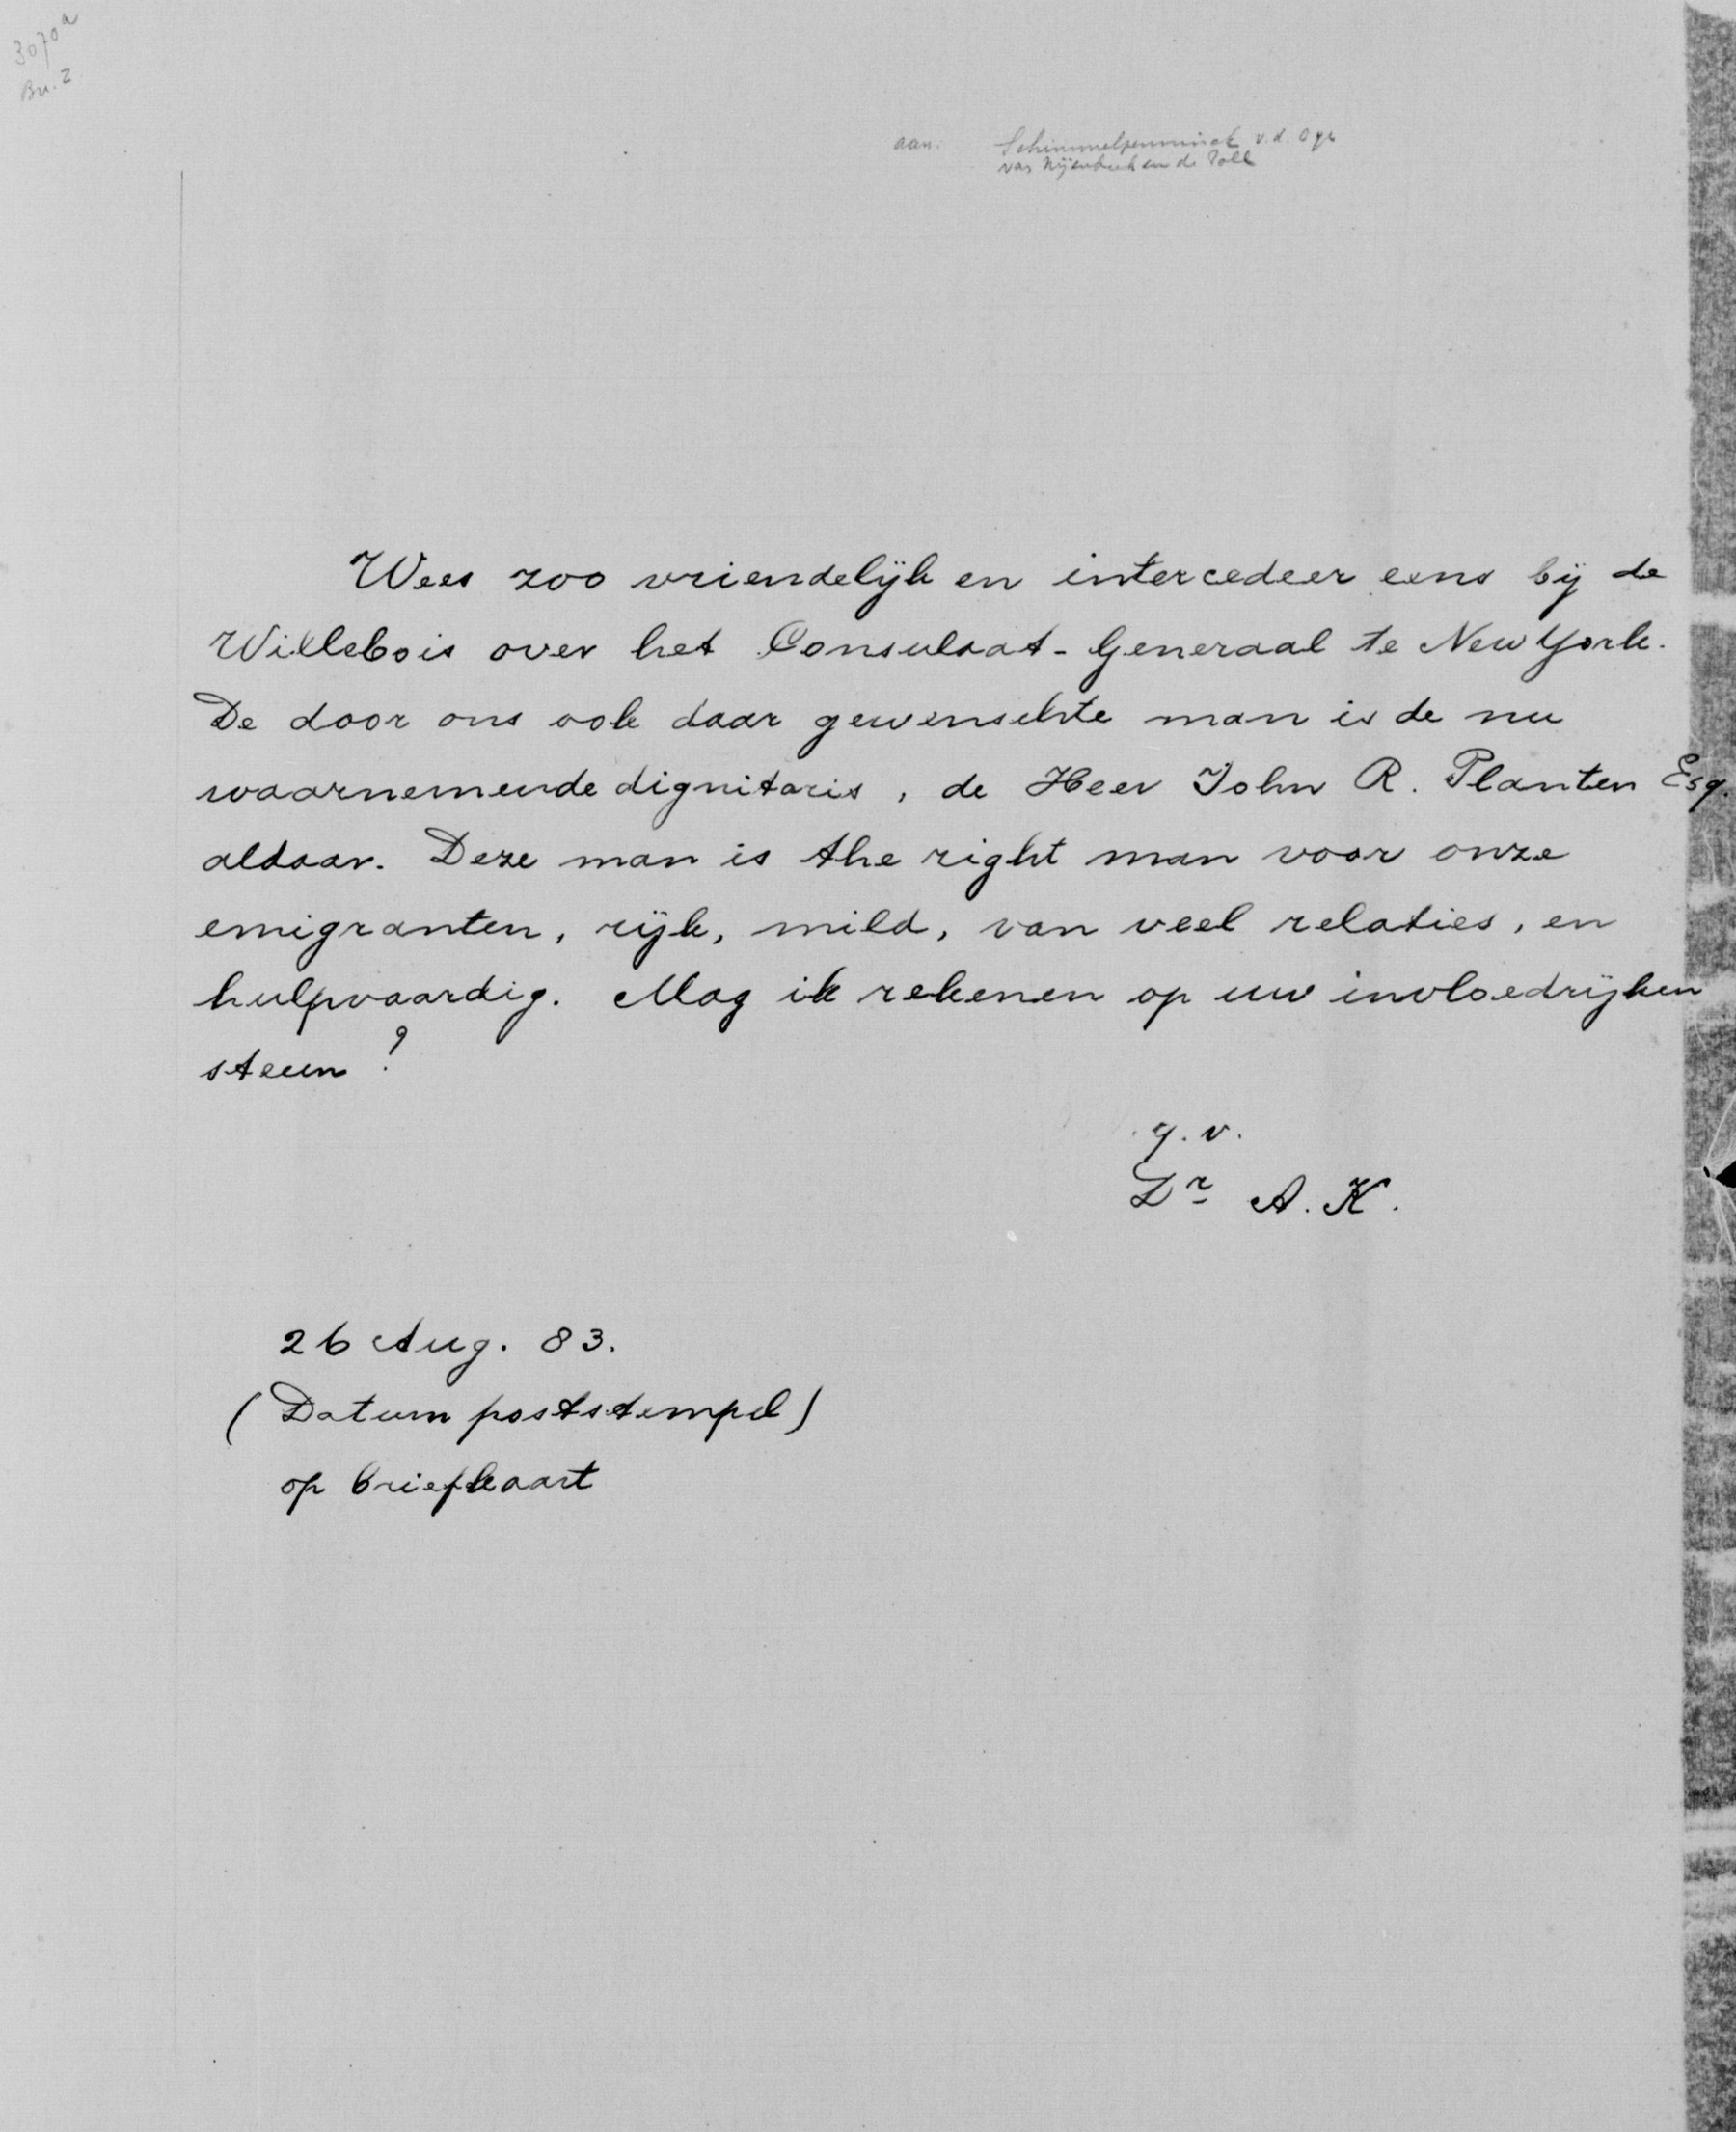 3070a
Br. 2
aan: Schimmelpenninck v.d. Oye
van Nijenbeek en de Poll
Wees zoo vriendelijk en intercedeer eens bij de
Willebois over het Consulaat-Generaal te New York.
De door ons ook daar gewenschte man is de nu
waarnemende dignitaris, de Heer John R. Planten Esq.
aldaar. Deze man is the right man voor onze
emigranten, rijk, mild, van veel relaties, en
hulpvaardig. Mag ik rekenen op uw invloedrijken
steun?
g. v.
Dr A. K.
26 Aug. 83.
(Datum poststempel)
op briefkaart